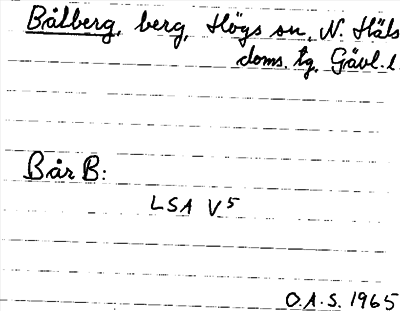 Bålberg, berg, Högs sn, N. Häls
doms. tg, Gävl. l
Bår B:
LSA V5
O.A.S. 1965